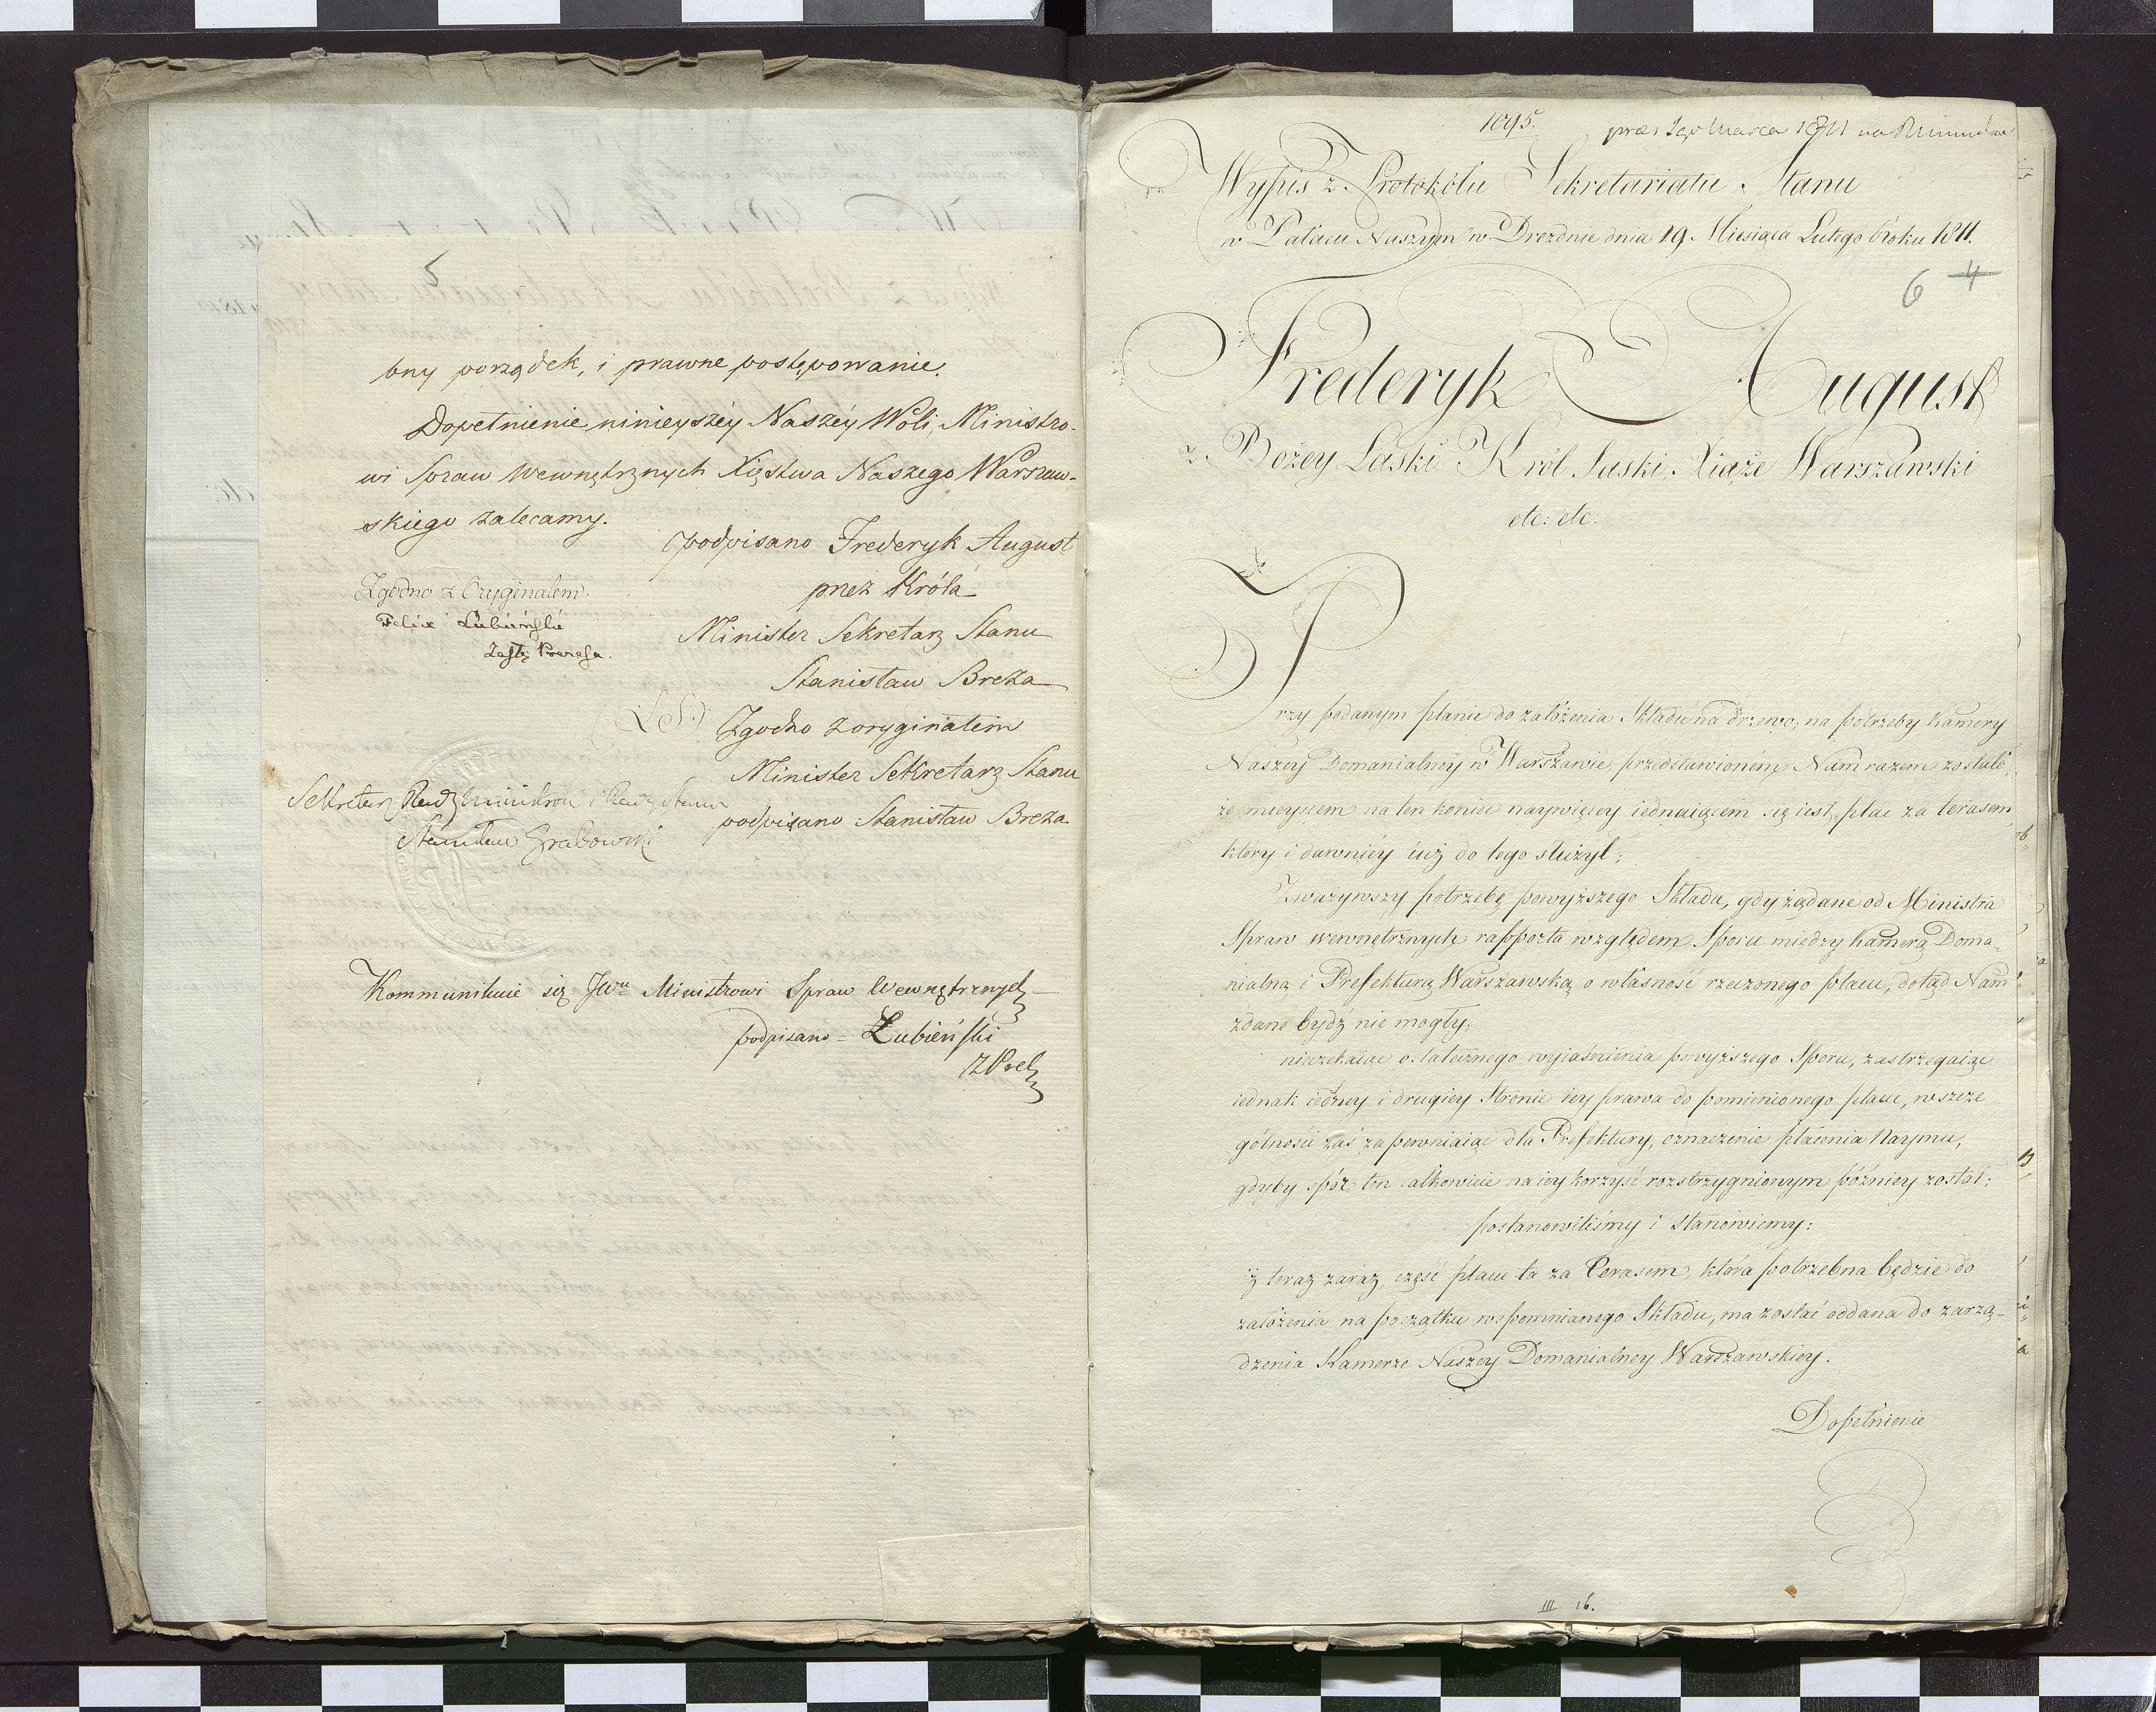 5
bny porządek, i prawne postępowanie.
Dopełnienie ninieyszéy Naszéy Woli, Ministro-
wi Spraw Wewnętrznych Xięstwa Naszego Warszaw-
skiego zalecamy.
(podpisano Frederyk August
przez Króla
Minister Sekretarz Stanu
Stanisław Breza
(LS.) Zgodno z oryginałem
Minister Sekretarz Stanu
podpisano Stanisław Breza
Zgodno z Oryginałem.
Felix Łubiński
Zastę Prezesa.
Sekretarz Rady Ministrow i Rady Stanu
Stanisław Grabowski
Kommunikuie się JWu Ministrowi Spraw Wewnętrznych
podpisano = Łubieński
ZPrez
1095.
præs 1go Marca 1811
Wypis z Protokółu Sekretariatu Stanu
w Pałacu Naszym w Dreznie dnia 19 Miesiąca Lutego Roku 1811.
6 4
Frederyk August
z Bożey Łaski Król Saski, Xiąże Warszawski
etc: etc:
Przy podanym planie do założenia Składu na drzewo, na potrzeby Kamery
Naszey Domanialney w Warszawie, przedstawionem Nam razem zostało,
że mieyscem na ten koniec naywięcey iednaiącem się iest, plac za terasem,
który i dawniéy iuż do tego służył;
Zważywszy potrzebę powyższego Składu, gdy żądane od Ministra
Spraw wewnętrznych rapporta względem Sporu między Kamerą Doma-
nialną i Prefekturą Warszawską o własność rzeczonego placu, dotąd Nam
zdane bydź nie mogły;
nieczekaiąc ostatecznego wyiaśnienia powyższego Sporu, zastrzegaiąc
iednak iedney i drugiey Stronie iey prawa do pomienionego placu, w szcze-
gólności zaś zapewniaiąc dla Prefektury, oznaczenie płacenia Naymu,
gdyby spór ten całkowicie na iey korzyść rozstrzygnionym późniey został;
postanowiliśmy i stanowiemy:
iż teraz zaraz, część placu ta za Terasem, która potrzebna będzie do
założenia na początku wspomnianego Składu, ma zostać oddana do zarzą-
dzenia Kamerze Naszey Domanialney Warszawskiey.
Dopełnienie
III 16.